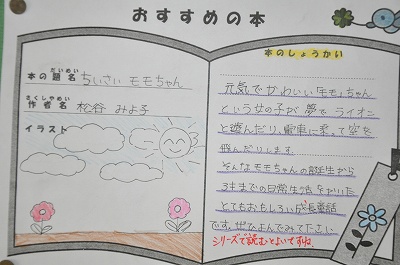 おすすめの本
だいめい
本の題名 ちいさい モモちゃん
さくしゃめい
作者名 松谷 みよ子
イラスト
本のしょうかい
元気でかわいい「モモ」ちゃん
という女の子が夢でライオン
と遊んだり、電車に乗って空を
飛んだりします。
そんなモモちゃんの誕生から
3才までの日常生活をかいた
とてもおもしろい成長童話
です。ぜひよんでみてください
シリーズで読むとよいですね。